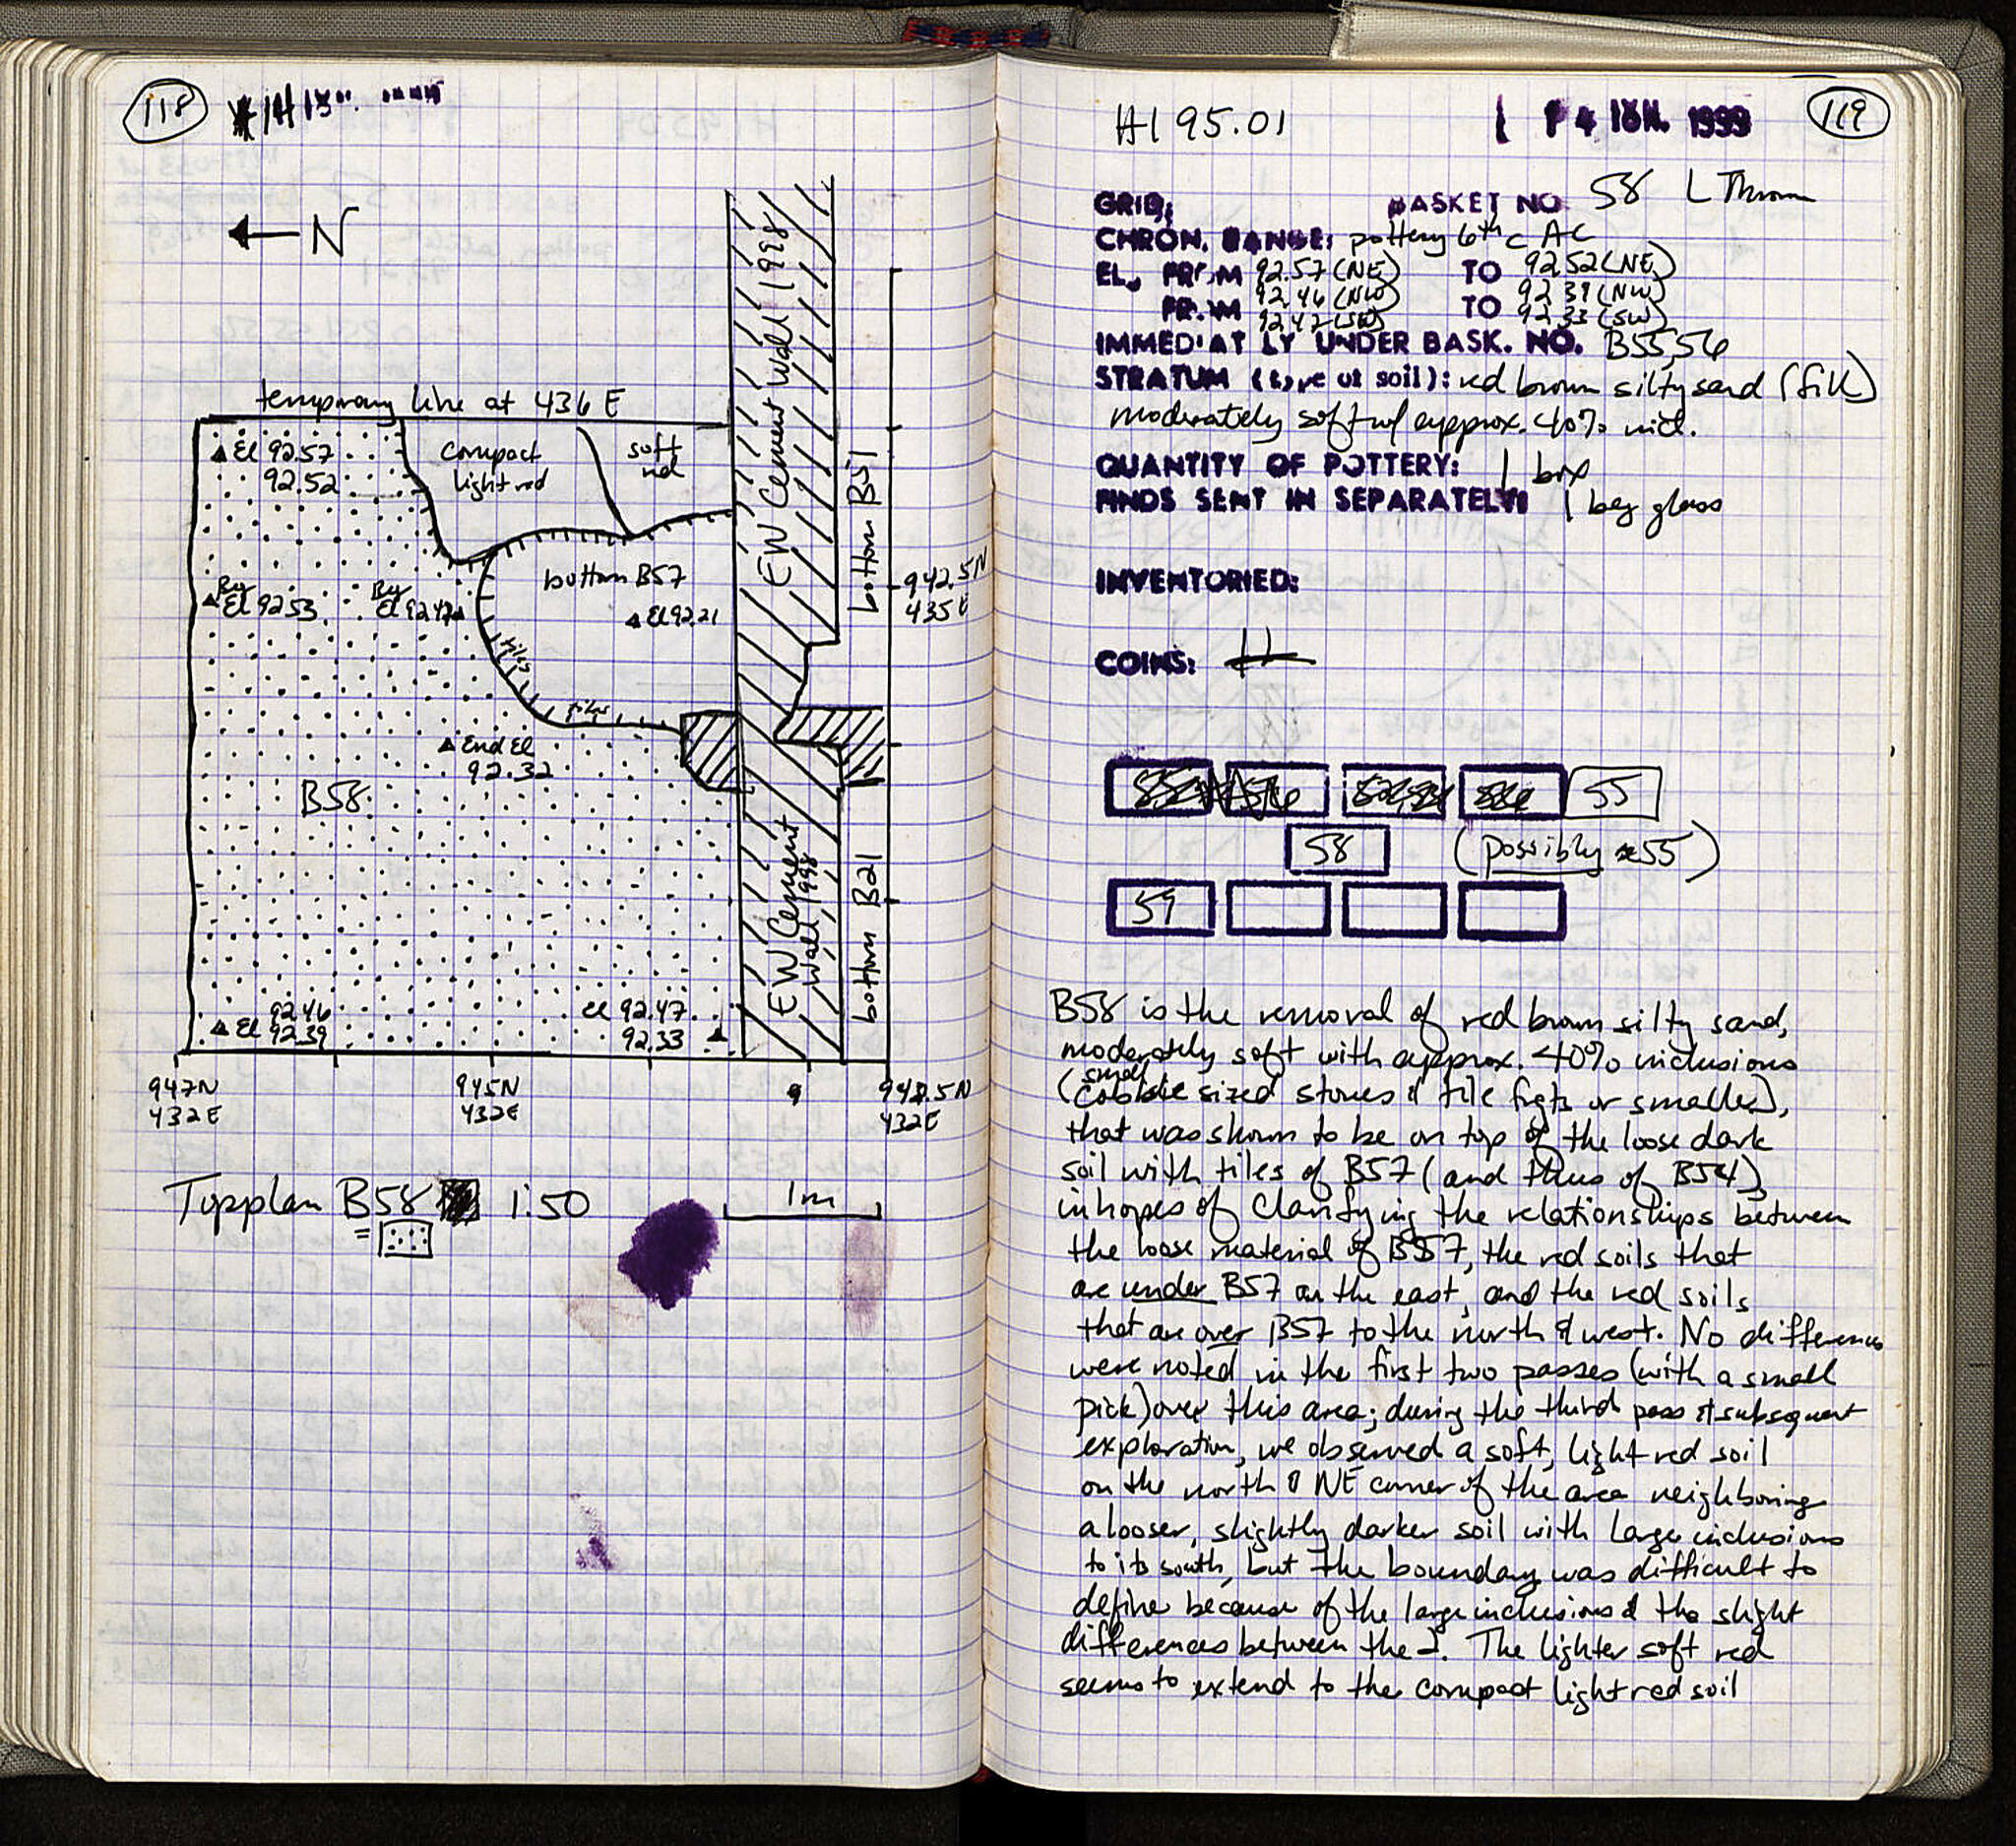 118
N
temporary line at 436 E
El 92.57
92.52
compact
light red
soft
red
EW Cement Wall 1998
bottom B51
bottom B57
El 92.21
942.5N
435E
Beg
El 92.53
Beg
El 92.47
tiles
tiles
End El
92.32
B58
EW Cement
Wall 1998
bottom B21
92.46
El 92.39
el 92.47
92.33
947N
432E
945N
432E
942.5N
432E
Topplan B58 1:50
1m
=
H1 95.01
1999
119
GRID:
BASKET NO. 58
CHRON. RANGE: pottery 6th c AC
EL. FROM 92.57 (NE) TO 92.52 (NE)
92.46 (NW) 92.39 (NW)
FROM 92.47 (SW) TO 92.33 (SW)
IMMEDIATELY UNDER BASK. NO. B55,56
STRATUM (type of soil): red brown silty sand (fill)
moderately soft w/ approx. 40% incl.
QUANTITY OF POTTERY: 1 box
FINDS SENT IN SEPARATELY: 1 bag glass
INVENTORIED:
COINS:
55
58 (possibly 55)
59
B58 is the removal of red brown silty sand,
moderately soft with approx. 40% inclusions
(small cobble sized stones & tile frgts or smaller),
that was shown to be on top of the loose dark
soil with tiles of B57 (and thus of B54)
in hopes of clarifying the relationships between
the loose material of B57, the red soils that
are under B57 on the east, and the red soils
that are over B57 to the north & west. No differences
were noted in the first two passes (with a small
pick) over this area; during the third pass & subsequent
exploration, we observed a soft, light red soil
on the north & NE corner of the area neighboring
a looser, slightly darker soil with large inclusions
to its south, but the boundary was difficult to
define because of the large inclusions & the slight
differences between the 2. The lighter soft red
seems to extend to the compact light red soil